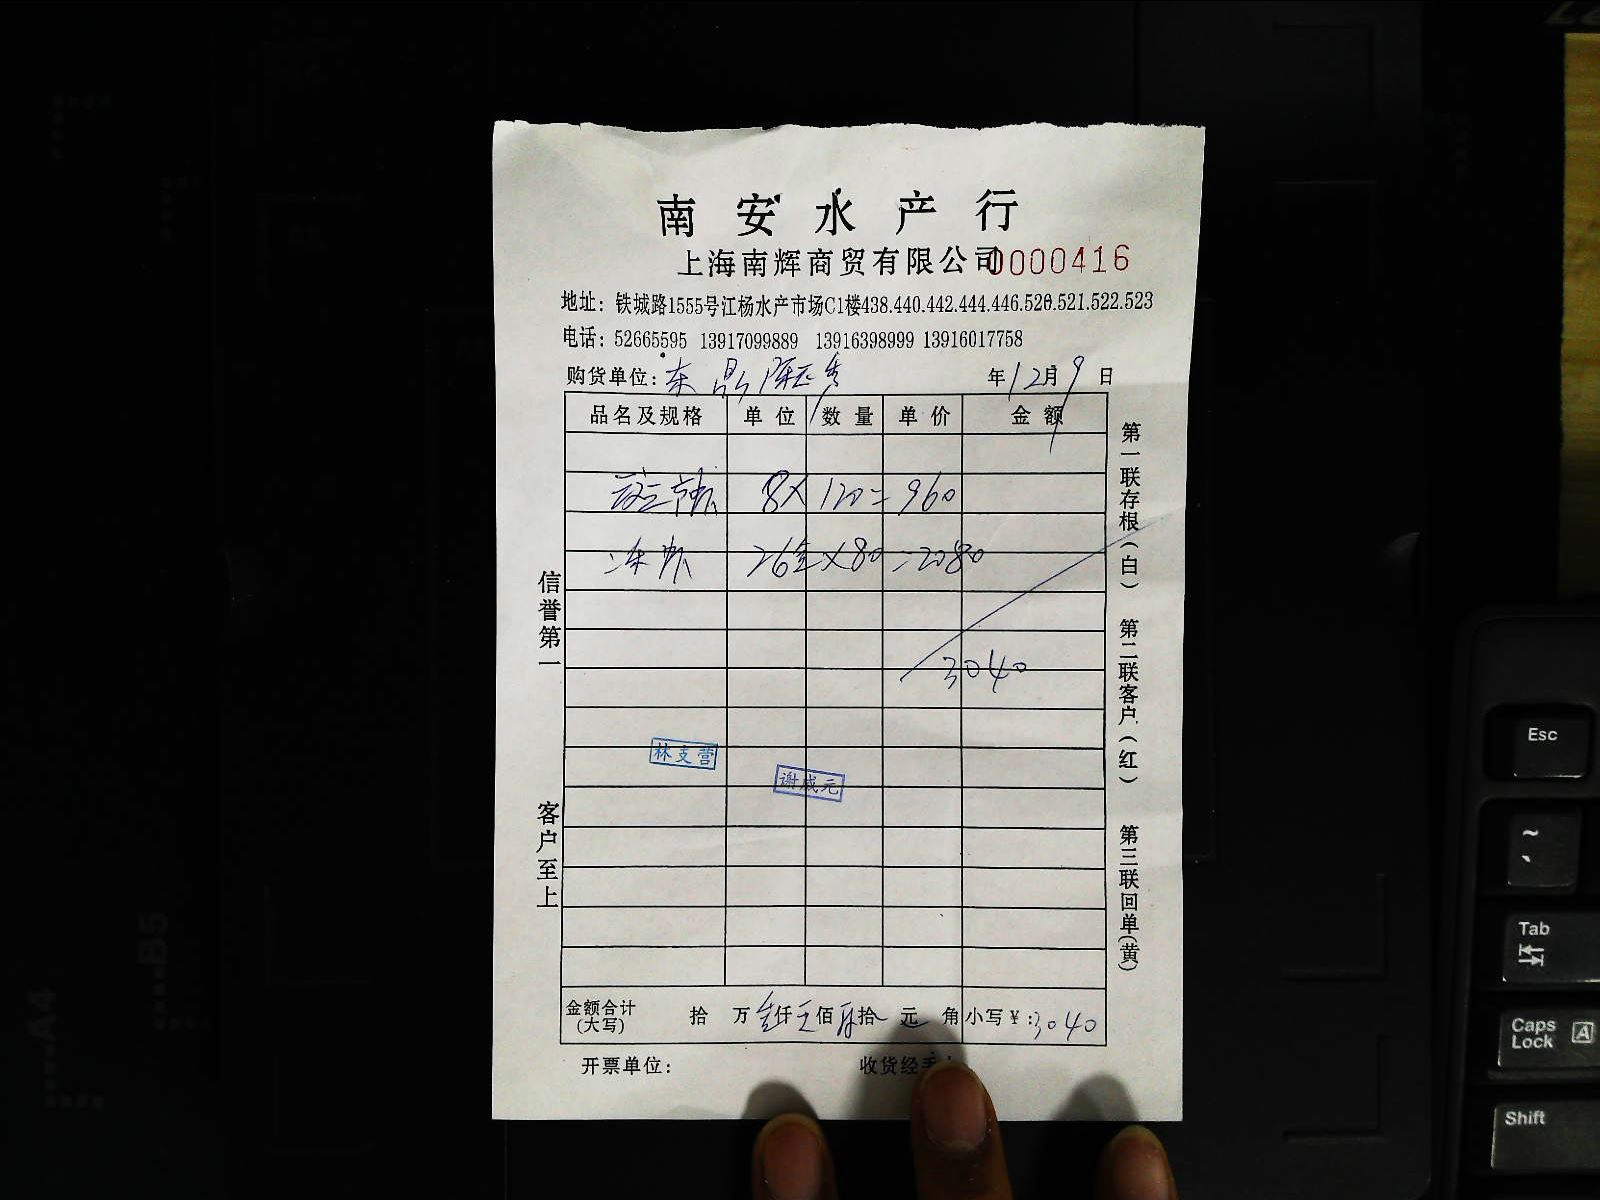 南安水产行
上海南辉商贸有限公司 0000416
地址：铁城路1555号江杨水产市场C1楼438.440.442.444.446.520.521.522.523
电话：52665595 13917099889 13916398999 13916017758
购货单位： 年12月9日
品名及规格 单位 数量 单价 金额
8X120=960
26X80=2080
3040
林支营
谢成元
金额合计(大写) 拾 万 仟 佰 拾 元 角 小写￥：3040
开票单位： 收货经手
信誉第一 客户至上
第一联存根(白) 第二联客户(红) 第三联回单(黄)
Esc
~
Tab
Caps Lock A
Shift
A4
B5